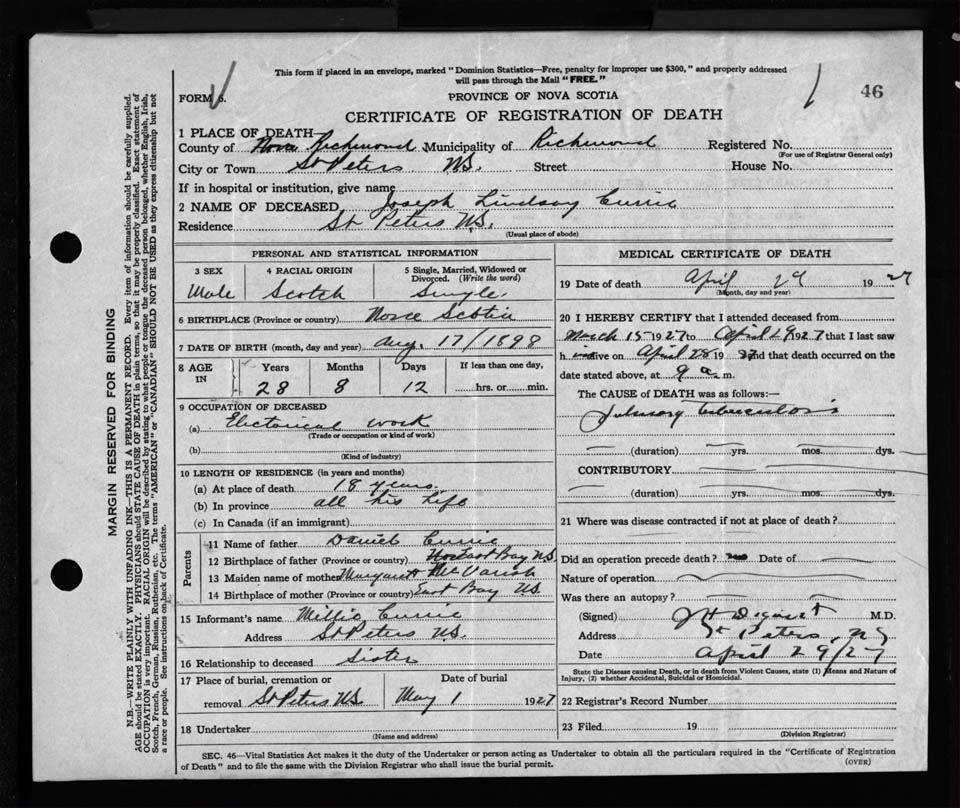 This form if placed in an envelope, marked "Dominion Statistics—Free, penalty for improper use $300," and properly addressed
will pass through the Mail "FREE."
FORM 6.
PROVINCE OF NOVA SCOTIA
46
CERTIFICATE OF REGISTRATION OF DEATH
1 PLACE OF DEATH—
County of Richmond Municipality of Richmond Registered No.
(For use of Registrar General only)
City or Town St Peters N.S. Street House No.
If in hospital or institution, give name
2 NAME OF DECEASED Joseph Lindsay Currie
Residence St Peters N.S.
(Usual place of abode)
PERSONAL AND STATISTICAL INFORMATION
3 SEX 4 RACIAL ORIGIN 5 Single, Married, Widowed or
Divorced. (Write the word)
Male Scotch Single.
6 BIRTHPLACE (Province or country) Nova Scotia
7 DATE OF BIRTH (month, day and year) Aug. 17/1898
8 AGE IN Years Months Days If less than one day,
28 8 12 hrs. or min.
9 OCCUPATION OF DECEASED
(a) Electorical work
(Trade or occupation or kind of work)
(b)
(Kind of industry)
10 LENGTH OF RESIDENCE (in years and months)
(a) At place of death 18 years.
(b) In province all his life
(c) In Canada (if an immigrant)
Parents
11 Name of father Daniel Currie
12 Birthplace of father (Province or country) East Bay N.S.
13 Maiden name of mother Margaret McVarish
14 Birthplace of mother (Province or country) East Bay N.S.
15 Informant's name Millie Currie
Address St Peters N.S.
16 Relationship to deceased Sister
17 Place of burial, cremation or Date of burial
removal St Peters N.S. May 1 1927
18 Undertaker
(Name and address)
MEDICAL CERTIFICATE OF DEATH
19 Date of death April 29 1927
(Month, day and year)
20 I HEREBY CERTIFY that I attended deceased from
March 15 1927 to April 29 1927 that I last saw
h im alive on April 28 1927 and that death occurred on the
date stated above, at 9 a. m.
The CAUSE of DEATH was as follows:—
Pulmonary tuberculosis
(duration) yrs. mos. dys.
CONTRIBUTORY
(duration) yrs. mos. dys.
21 Where was disease contracted if not at place of death?
Did an operation precede death? no Date of
Nature of operation
Was there an autopsy?
(Signed) M.D.
Address St Peters, N.S.
Date April 29/27
State the Disease causing Death, or in death from Violent Causes, state (1) Means and Nature of
Injury, (2) whether Accidental, Suicidal or Homicidal.
22 Registrar's Record Number
23 Filed 19
(Division Registrar)
SEC. 46—Vital Statistics Act makes it the duty of the Undertaker or person acting as Undertaker to obtain all the particulars required in the "Certificate of Registration
of Death" and to file the same with the Division Registrar who shall issue the burial permit.
(OVER)
MARGIN RESERVED FOR BINDING
N.B.—WRITE PLAINLY WITH UNFADING INK—THIS IS A PERMANENT RECORD. Every item of information should be carefully supplied.
AGE should be stated EXACTLY. PHYSICIANS should STATE CAUSE OF DEATH in plain terms, so that it may be properly classified. Exact statement of
OCCUPATION is very important. RACIAL ORIGIN will be described by stating to what people or tongue the deceased person belonged, whether English, Irish,
Scotch, French, German, Russian, Ruthenian, etc. The terms "AMERICAN" or "CANADIAN" SHOULD NOT BE USED as they express citizenship but not
a race or people. See instructions on back of Certificate.